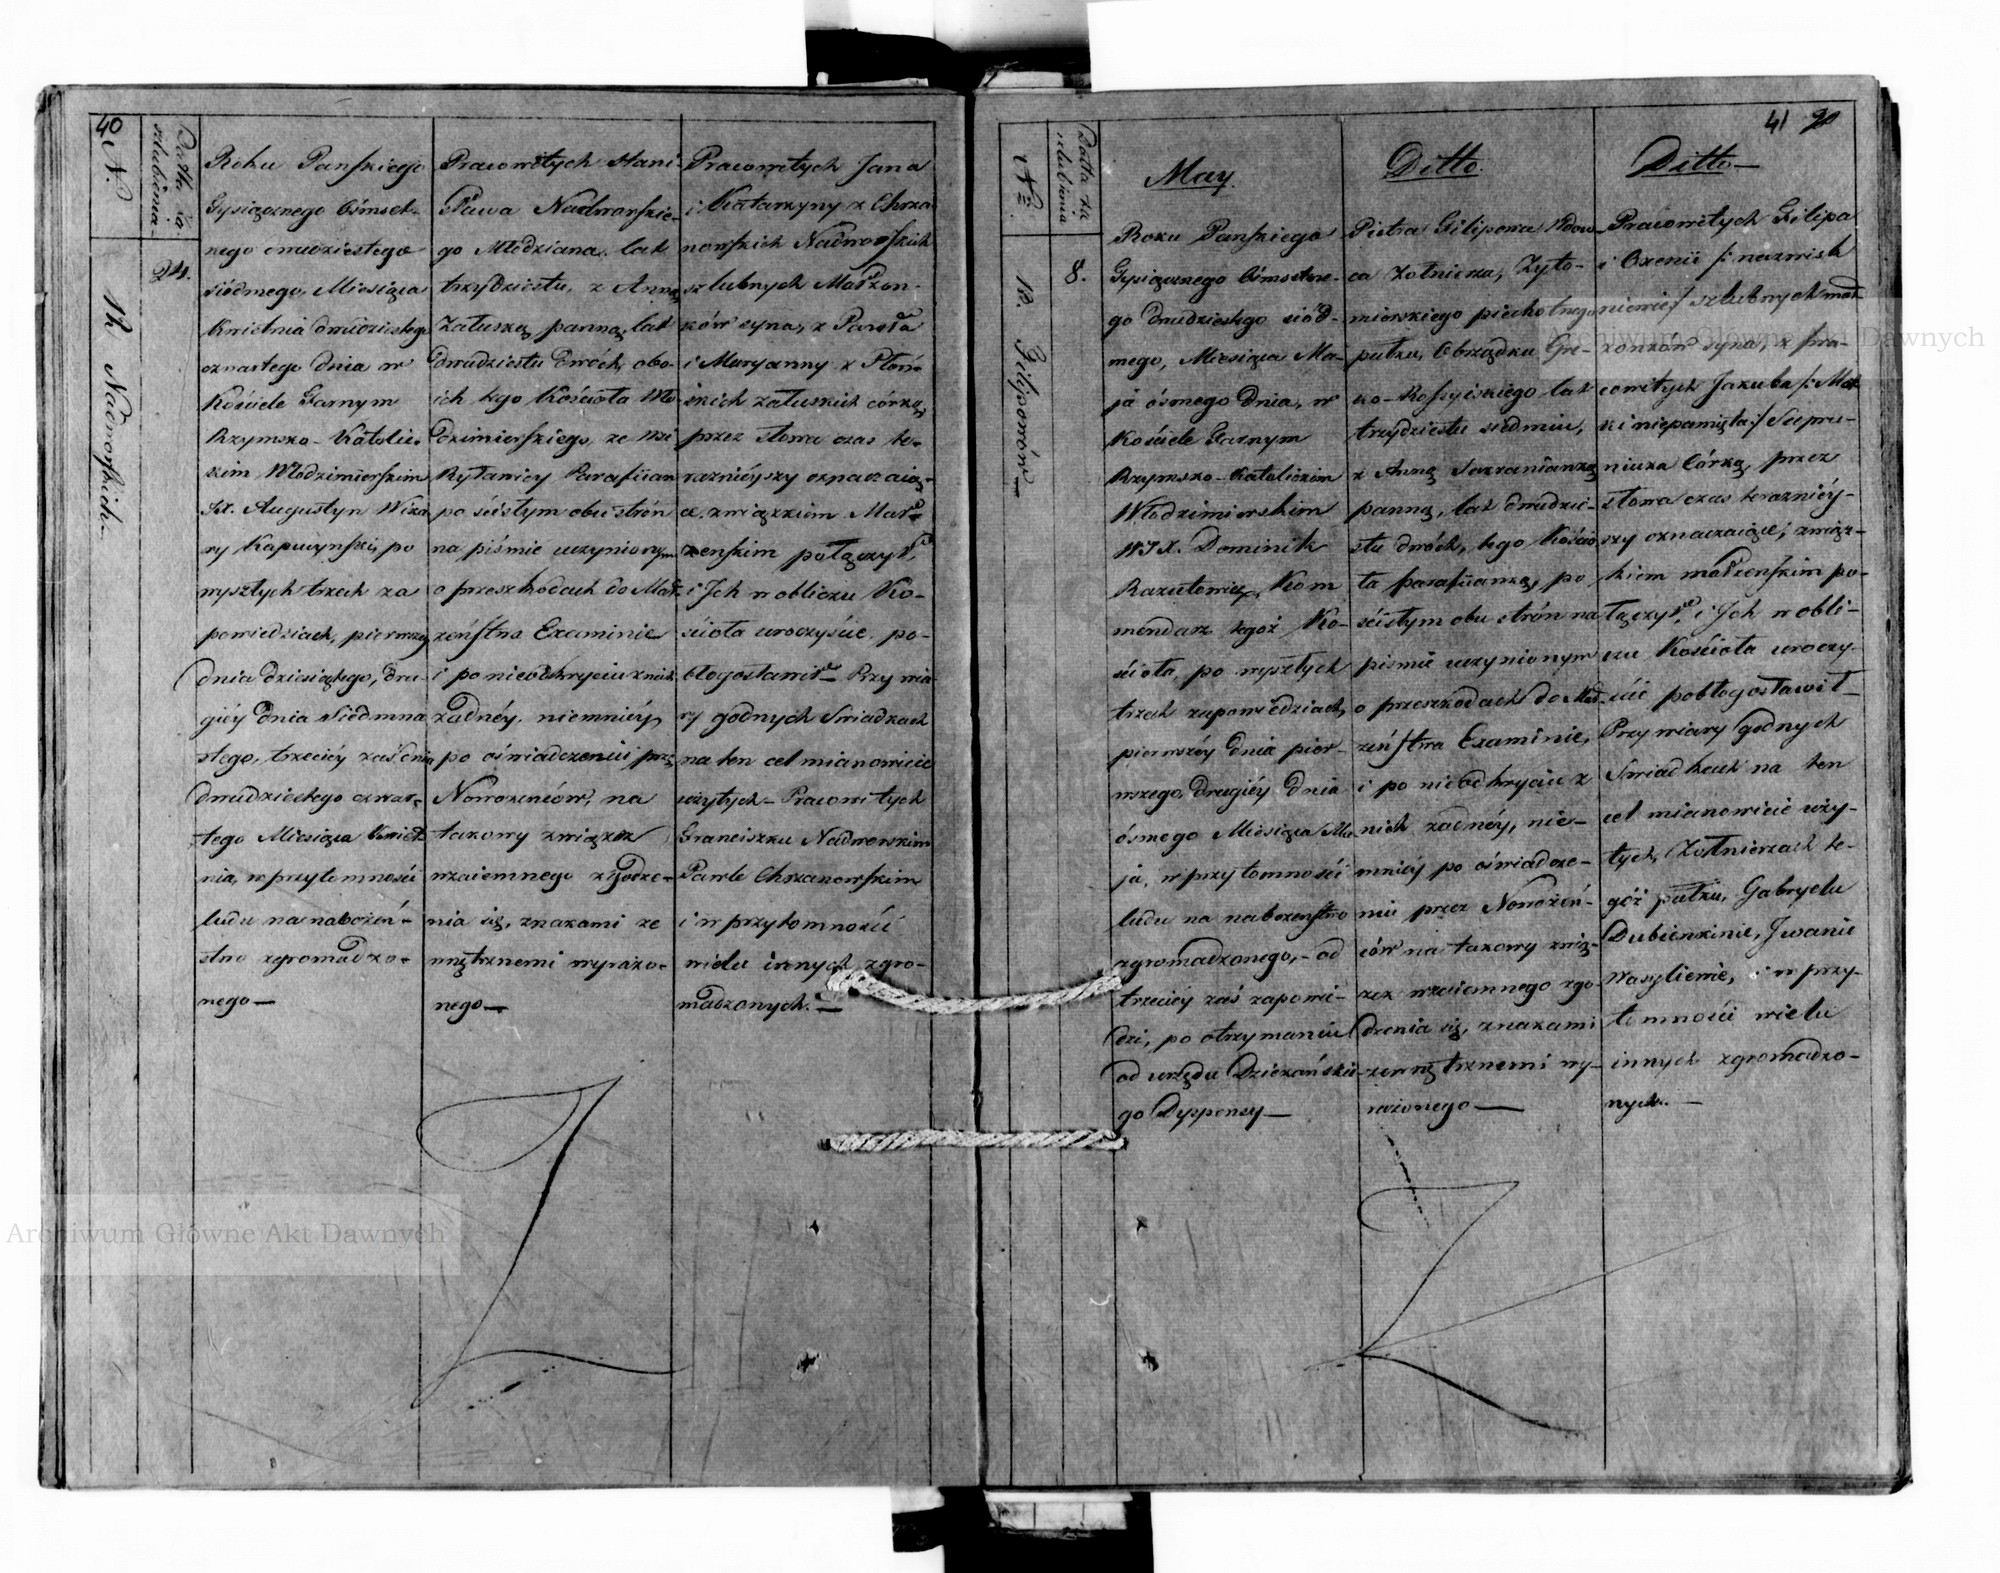 40
N.
Datta za
szlubienia
24.
12 Nadworskich.
Roku Pańskiego
Tysiącznego Ośmset-
nego dwudziestego
siódmego, Miesiąca
Kwietnia dwudziestego
czwartego dnia w
Kościele Farnym
Rzymsko-Katolic-
kim Włodzimierskim
Augustyn
Kapucyński, po
wyszłych trzech za
powiedziach, pierwszey
dnia dziesiątego, dru-
giéy dnia siedmna
stego, trzeciéy zaś dnia
dwudziestego czwar-
tego Miesiąca Kwiet
nia, w przytomności
ludu na nabożeń-
stwo zgromadzo-
nego—
Pracowitych Stani-
sława Nadworskie-
go Młodziana lat
trzydziestu, z Anną
Załuską panną, lat
dwudziestu dwóch, obo-
ich tego Kościoła Wło-
dzimierskiego, ze wsi
Rytawicy Parafiian
po ścisłym obu strón
na piśmie uczynionym
o przeszkodach do Mał-
żeństwa Examinie
i po nieodkryciu z nich
żadnéy, niemniéy
po oświadczeniu przez
Nowożeńców, na
takowy związek
wzaiemnego zgodze-
nia się, znakami ze
wnętrznemi wyrażo-
nego—
Pracowitych Jana
i Katarzyny z Chrza-
nowskich Nadworskich
szlubnych Małżon-
ków syna, z Pawła
i Maryanny z Płoń-
skich Załuskich córką,
przez słowa czas te-
raznieyszy oznaczaią-
ce, związkiem Mał-
żenskim połączył,
i Ich w obliczu Ko-
ścioła uroczyście po-
błogosławił— Przy wia-
ry godnych Swiadkach
na ten cel mianowicie
użytych— Pracowitych
Franciszku Nadworskim
Pawle Chrzanowskim
i w przytomności
wielu innych zgro-
madzonych.—
41 20
No.
Datta za
szlubienia
8.
18. Filipowów—
May.
Roku Pańskiego
Tysiącznego Ośmsetne-
go dwudziestego siód-
mego, Miesiąca Ma-
ja ósmego dnia, w
Kościele Farnym
Rzymsko-Katolickim
Włodzimierskim
WJX. Dominik
Kom
mendarz tegoż Ko-
ścioła, po wyszłych
trzech zapowiedziach,
pierwszéy dnia pier-
wszego, drugiéy dnia
ósmego Miesiąca Ma
ja, w przytomności
ludu na nabożenstwo
zgromadzonego,- od
trzeciéy zaś zapowie-
dzi, po otrzymaniu
od urzędu Dziekańskie-
go Dyspensy—
Ditto.
Piotra Filipowa Wdow-
ca Żołnierza, Żyto-
mierskiego piechotnego
pułku, Obrządku Gre-
ko-Rossyiskiego lat
trzydziestu siedmiu,
z Anną
panną, lat dwudzie-
stu dwóch, tego Kościo
ła parafiianką, po
ścisłym obu strón na
piśmie uczynionym
o przeszkodach do Mał-
żeństwa Examinie,
i po nieodkryciu z
nich żadnéy, nie-
mniéy po oświadcze-
niu przez Nowożeń-
ców na takowy zwią-
zek wzaiemnego zgo-
dzenia się, znakami
zewnętrznemi wy-
rażonego—
Ditto—
Pracowitych Filipa
i Oxenii /: nazwisk
niewie:/ szlubnych mał-
żonków syna, z pra-
cowitych Jakuba /: Mat-
ki niepamięta:/
córką, przez
słowa czas teraznieỳ-
szy oznaczaiące, związ-
kiem małżeńskim po-
łączył, i Ich w obli-
czu Kościoła uroczy-
ście pobłogosławił—
Przy wiary godnych
Swiadkach na ten
cel mianowicie uży-
tych, Żołnierzach te-
góż pułku, Gabryelu
Dubienkinie, Jwanie
Wasyliewie, i w przy-
tomności wielu
innych zgromadzo-
nych.—
Archiwum Główne Akt Dawnych
Archiwum Główne Akt Dawnych